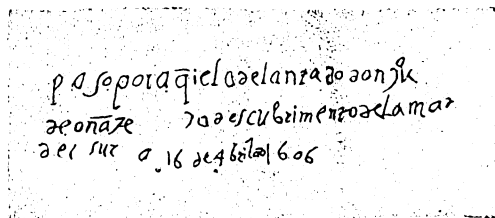 pasoporaq̄i eladelantado donjuº
deoñate descubrimentodelamar
del sur a 16 de Abril 1606